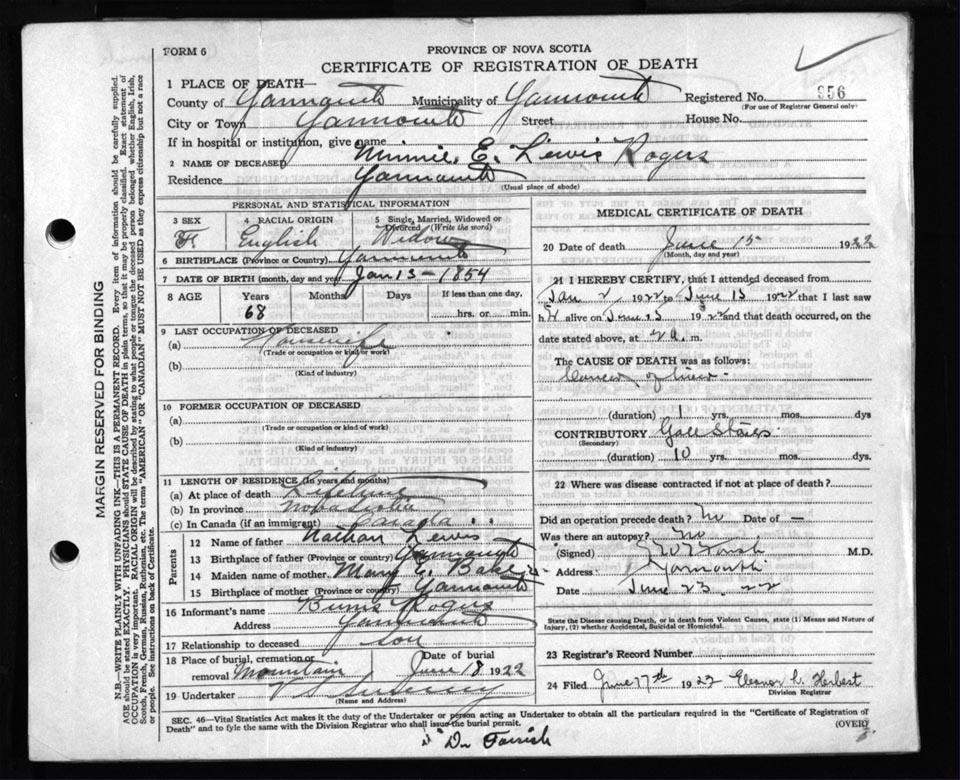 FORM 6
PROVINCE OF NOVA SCOTIA
CERTIFICATE OF REGISTRATION OF DEATH
1 PLACE OF DEATH—
County of Yarmouth Municipality of Yarmouth Registered No. 956
(For use of Registrar General only)
City or Town Yarmouth Street House No.
If in hospital or institution, give name
2 NAME OF DECEASED Minnie E. Lewis Rogers
Residence Yarmouth
(Usual place of abode)
PERSONAL AND STATISTICAL INFORMATION
3 SEX F
4 RACIAL ORIGIN English
5 Single, Married, Widowed or Divorced (Write the word) Widow
6 BIRTHPLACE (Province or Country) Yarmouth
7 DATE OF BIRTH (month, day and year) Jan 13 - 1854
8 AGE Years Months Days If less than one day,
68 hrs. or min.
9 LAST OCCUPATION OF DECEASED
(a) Housewife
(Trade or occupation or kind of work)
(b)
(Kind of industry)
10 FORMER OCCUPATION OF DECEASED
(a)
(Trade or occupation or kind of work)
(b)
(Kind of industry)
11 LENGTH OF RESIDENCE (In years and months)
(a) At place of death Lifetime
(b) In province Nova Scotia
(c) In Canada (if an immigrant) Canada " "
Parents
12 Name of father Nathan Lewis
13 Birthplace of father (Province or country) Yarmouth
14 Maiden name of mother Mary E. Baker
15 Birthplace of mother (Province or country) Yarmouth
16 Informant's name Rogers
Address Yarmouth
17 Relationship to deceased Son
18 Place of burial, cremation or removal Mountain
Date of burial June 18 1922
19 Undertaker V S Sweeny
(Name and Address)
MEDICAL CERTIFICATE OF DEATH
20 Date of death June 15 1922
(Month, day and year)
21 I HEREBY CERTIFY, that I attended deceased from
Jan 2, 1922 to June 15 1922 that I last saw
h alive on June 15 1922 and that death occurred, on the
date stated above, at 2 a. m.
The CAUSE OF DEATH was as follows:
Cancer of liver
(duration) 1 yrs. mos. dys
CONTRIBUTORY Gall Stones
(Secondary)
(duration) 10 yrs. mos. dys
22 Where was disease contracted if not at place of death?
Did an operation precede death? No Date of —
Was there an autopsy? No
(Signed) Farish M.D.
Address Yarmouth
Date June 23. 22
State the Disease causing Death, or in death from Violent Causes, state (1) Means and Nature of Injury, (2) whether Accidental, Suicidal or Homicidal.
23 Registrar's Record Number
24 Filed June 17th 1922 Eleanor L. Herbert
Division Registrar
SEC. 46—Vital Statistics Act makes it the duty of the Undertaker or person acting as Undertaker to obtain all the particulars required in the "Certificate of Registration of
Death" and to fyle the same with the Division Registrar who shall issue the burial permit.
(OVER)
Dr Farish
MARGIN RESERVED FOR BINDING
N.B.—WRITE PLAINLY WITH UNFADING INK—THIS IS A PERMANENT RECORD. Every item of information should be carefully supplied.
AGE should be stated EXACTLY. PHYSICIANS should STATE CAUSE OF DEATH in plain terms, so that it may be properly classified. Exact statement of
OCCUPATION is very important. RACIAL ORIGIN will be described by stating to what people or tongue the deceased person belonged whether English, Irish,
Scotch, French, German, Russian, Ruthenian, etc. The terms "AMERICAN" OR "CANADIAN" MUST NOT BE USED as they express citizenship but not a race
or people. See instructions on back of Certificate.